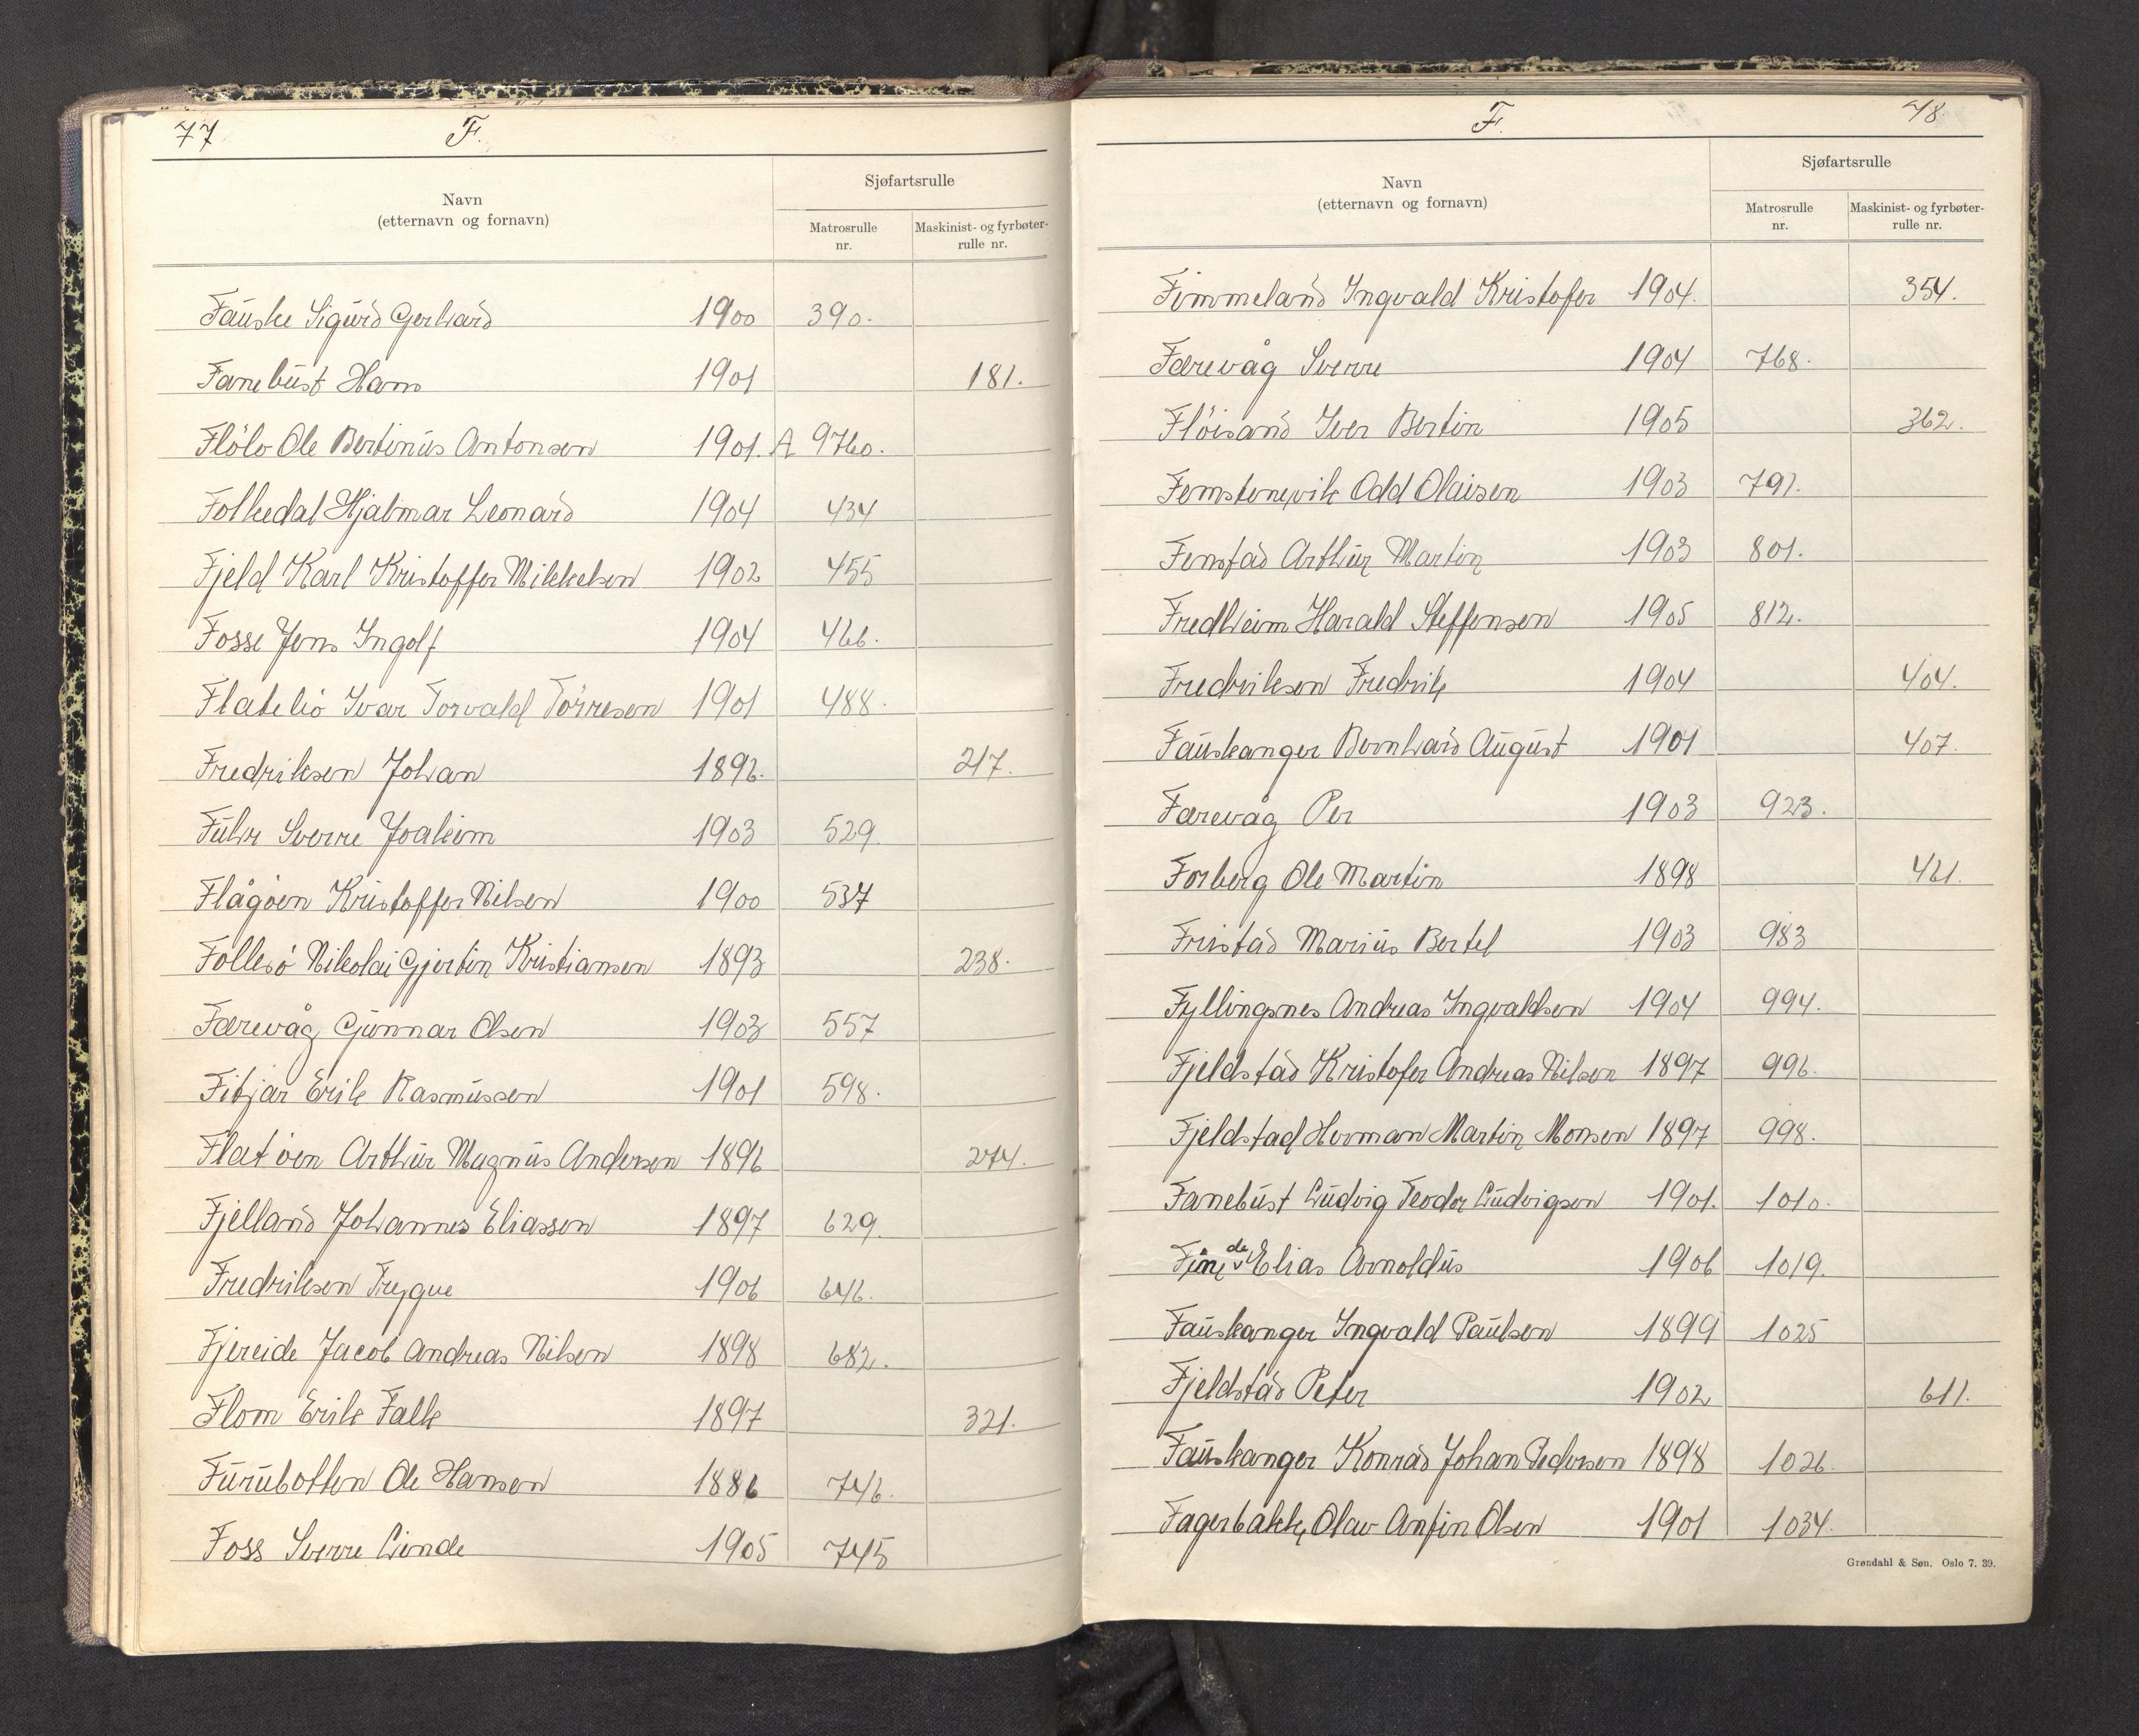 77 F.
Sjøfartsrulle
Navn
(etternavn og fornavn)
Matrosrulle nr.
Maskinist- og fyrbøter-rulle nr.
Fauske Sigurd Gerhard 1900 390.
Fanebust Hans 1901 181.
Flölo Ole Bertinus Antonsen 1901. A 9760.
Folkedal Hjalmar Leonard 1904 434
Fjeld Karl Kristoffer Mikkelsen 1902 455
Fosse Jens Ingolf 1904 466.
Flatekö Ivar Torvald Törresen 1901 488.
Fredriksen Johan 1892. 217.
Führ Sverre Joakim 1903 529.
Flågöen Kristoffer Nilsen 1900 537
Follesö Nikolai Gjertin Kristiansen 1893 238.
Færevåg Gunnar Olsen 1903 557
Fitjar Erik Rasmussen 1901 598.
Flatöen Arthur Magnus Andersen 1896 274.
Fjelland Johannes Eliassen 1897 629.
Fredriksen Trygve 1906 646.
Fjereide Jacob Andreas Nilsen 1898 682.
Flom Erik Falk 1897 321.
Furubotten Ole Hansen 1886 746.
Foss Sverre Linde 1905 745
F. 78
Sjøfartsrulle
Navn
(etternavn og fornavn)
Matrosrulle nr.
Maskinist- og fyrbøter-rulle nr.
Fimmeland Ingvald Kristofer 1904. 354.
Færevåg Sverre 1904 768.
Flöisand Iver Bertin 1905 362.
Femstenevik Odd Olaisen 1903 791.
Fenstad Arthur Martin 1903 801.
Fredheim Harald Steffensen 1905 812.
Fredriksen Fredrik 1904 404.
Fauskanger Bernhard August 1901 407.
Færevåg Per 1903 923.
Forberg Ole Martin 1898 461.
Fristad Marius Bertel 1903 983
Fyllingsnes Andreas Ingvaldsen 1904 994.
Fjeldstad Kristofer Andreas Nilsen 1897 996.
Fjeldstad Herman Martin Monsen 1897 998.
Fanebust Ludvig Teodor Ludvigsen 1901. 1010.
de Elias Arnoldus 1906 1019.
Fauskanger Ingvald Paulsen 1899 1025
Fjeldstad Peter 1902 611.
Fauskanger Konrad Johan Pedersen 1898 1026.
Fagerbakke Olav Anfin Olsen 1901 1034.
Grøndahl & Søn. Oslo 7. 39.